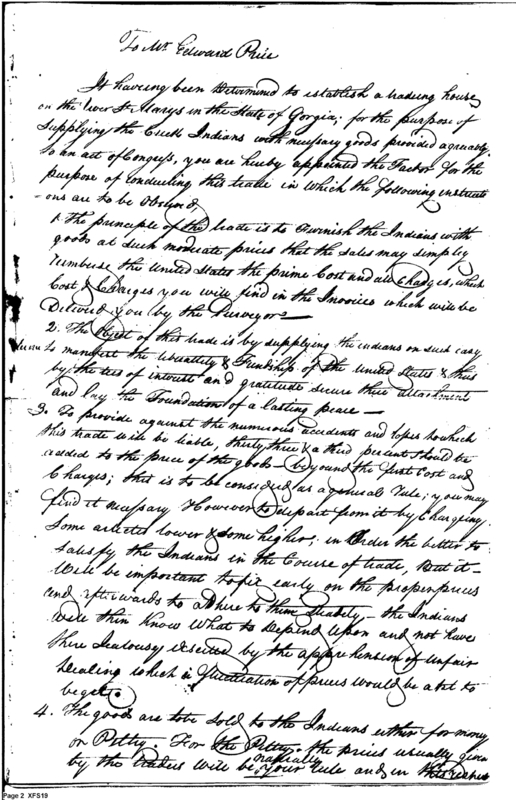 To Mr. Edward Price
It haveing been Determined to establish a trading house
on the river St. Marys in the State of Gorgia; for the purpose of
Supplying the Creek Indians with necessary goods provided agreeably
to an act of Congress, you are hereby appointed the Factor for the
purpose of conducting this trade in which the following instructi
-ons are to be observed;
1. The principle of the trade is to furnish the Indians with
goods at such moderate prices that the sales may simply
reimburse the United States the prime Cost and all Charges, which
Cost & Charges you will find in the Invoices which will be
Delivered you by the Purveyor—
2. The object of this trade is by supplying the indians on such easy
terms to manifest the liberality & Friendship of the United States & thus
by the ties of interest and gratitude secure their attachment
and lay the Foundation of a lasting peace—
3. To provide against the numerous accidents and losses to which
this trade will be liable, thirty three & a third percent should be
added to the price of the goods—beyound the first Cost and
Charges; this is to be considered as a general rule; you may
find it necessary However to depart from it by Chargeing
some articles lower & some higher; in Order the better to
satisfy the Indians in the Course of trade, But it
will be important to fix early on the proper prices
and afterwards to adhere to them steadily—the Indians
will then know what to Depend upon and not have
there Jealousy excited by the apprehension of unfair
Dealing which a fluctuation of prices would be apt to
beget.
4. The goods are to be sold to the Indians either for money
or Peltry. For the Peltry the prices usually given
by the traders will be naturally your rule and in this respect
Page 2 XFS19